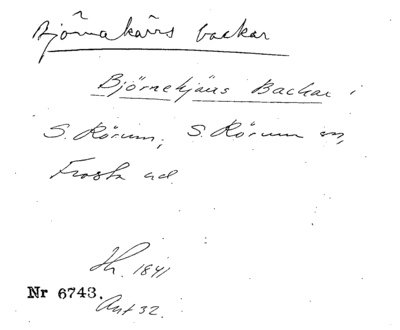 Björnakärs backar
Björnekjärs Backar i
S. Rörum, S. Rörum sn,
Frosta hd.
Lh. 1841
Nr 6743.
Ant 32.